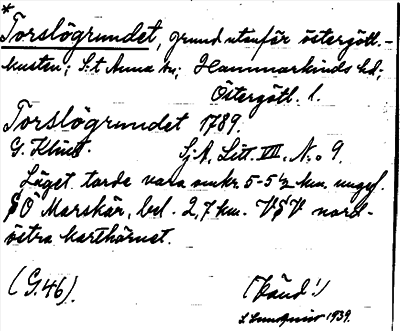 *
Torslögrundet, grund utanför östergötl.-
kusten; S:t Anna sn; Hammarkinds hd;
Östergötl. l.
Torslögrundet 1789.
G. Klint. Sj.A. Litt. VII. N:o 9.
Läget torde vara omkr. 5-5½ km. ungef.
SO Marskär, bel. 2,7 km. VSV nord-
östra karthörnet.
(G.46). (Vänd!)
1939.